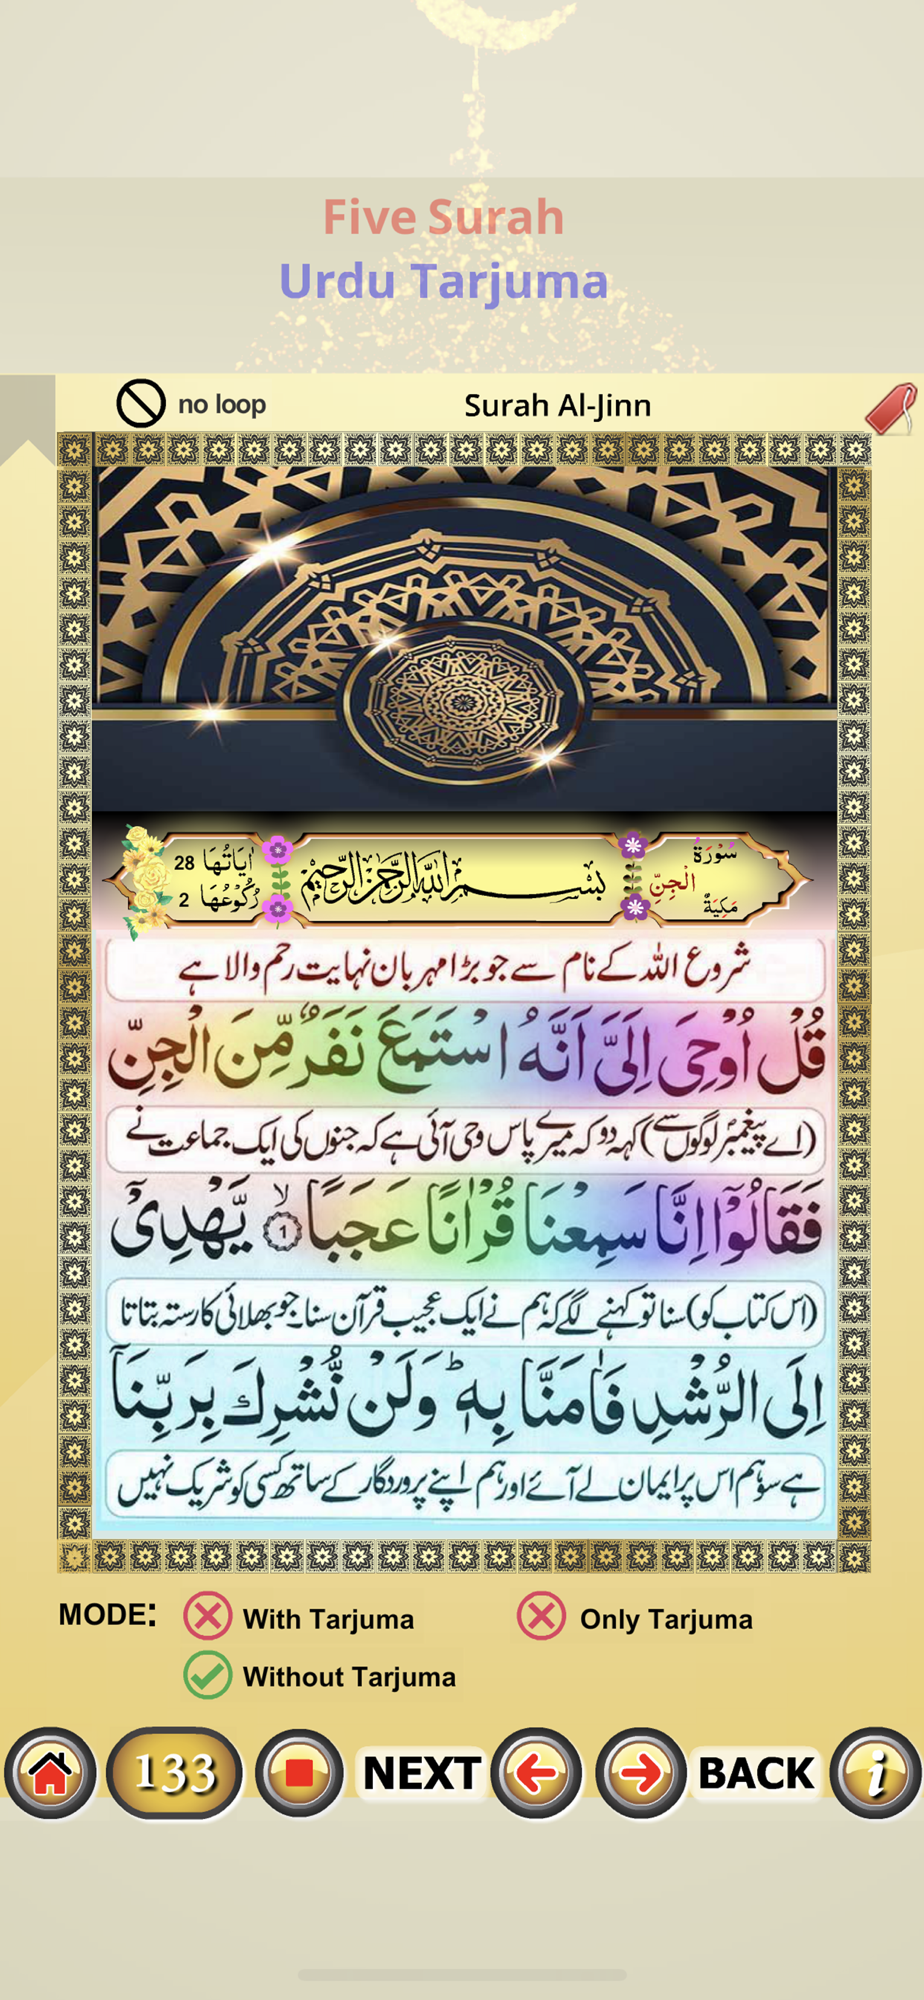 Five Surah
Urdu Tarjuma
no loop
Surah Al-Jinn
سُوْرَةُ
الْجِنِّ
مَكِيَةٌ
بسم الله الرحمن الرحيم
اٰيَاتُهَا 28
رُكُوْعُهَا 2
شروع اللہ کے نام سے جو بڑا مہربان نہایت رحم والا ہے
قُلْ اُوْحِیَ اِلَیَّ اَنَّهُ اسْتَمَعَ نَفَرٌ مِّنَ الْجِنِّ
(اے پیغمبر لوگوں سے) کہہ دو کہ میرے پاس وحی آئی ہے کہ جنوں کی ایک جماعت نے
فَقَالُوْۤا اِنَّا سَمِعْنَا قُرْاٰنًا عَجَبًا ۙ‏ 1 یَّهْدِیْۤ
(اس کتاب کو) سنا تو کہنے لگے کہ ہم نے ایک عجیب قرآن سنا۔ جو بھلائی کا رستہ بتاتا
اِلَی الرُّشْدِ فَاٰمَنَّا بِهٖ ؕ وَلَنْ نُّشْرِكَ بِرَبِّنَاۤ
ہے سو ہم اس پر ایمان لے آئے اور ہم اپنے پروردگار کے ساتھ کسی کو شریک نہیں
MODE:
With Tarjuma
Only Tarjuma
Without Tarjuma
133
NEXT
BACK
i